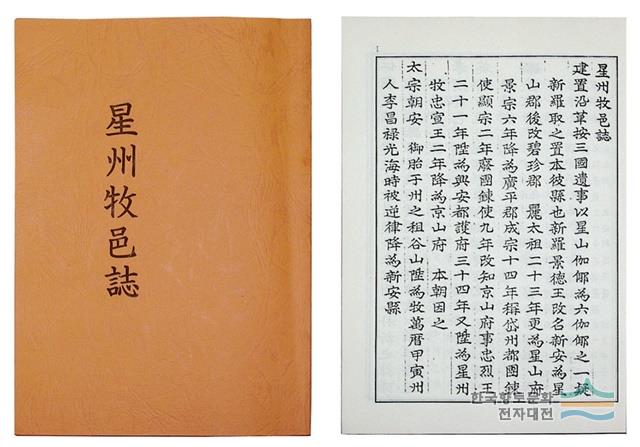 星州牧邑誌
星州牧邑誌
建置沿革按三國遺事以星山伽倻為六伽倻之一擬
新羅取之置本彼縣也新羅景德王改名新安為星
山郡後改碧珍郡 麗太祖二十三年更為星山府
景宗六年降為廣平郡成宗十四年稱岱州都團鍊
使顯宗二年廢團鍊使九年改知京山府事忠烈王
二十一年陞為興安都護府三十四年又陞為星州
牧忠宣王二年降為京山府 本朝因之
太宗朝安 御胎于州之祖谷山陞為牧萬曆甲寅州
人李昌祿光海時被逆律降為新安縣
한국향토문화
전자대전